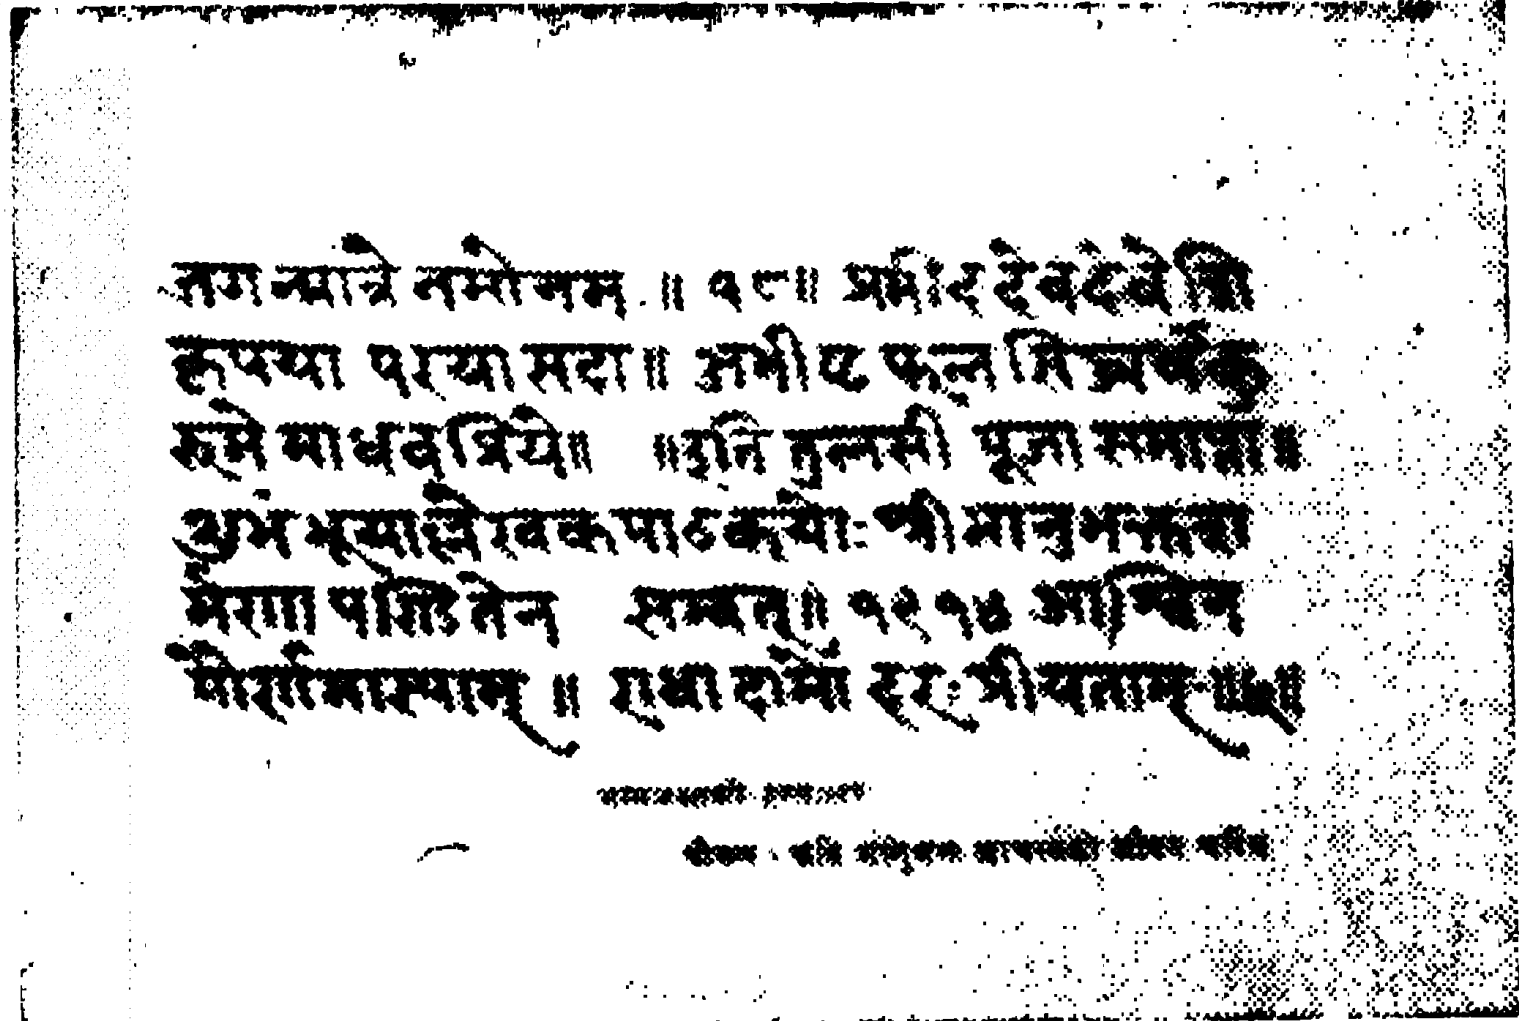 जगन्मात्रे नमोनमः ॥ १८॥ प्रसीद देवदेवेशि
कृपया परया मुदा॥ अभीष्टफलसिद्धिं च कु
रु मे माधवप्रिये॥ ॥इति तुलसी पूजा समाप्ता॥
शुभं भूयाल्लेखकपाठकयोः श्रीमात्रुभक्तरा
मेण पण्डितेन सम्वत्॥ १९१७ आश्विन
पौर्णमास्याम् ॥ राधा दामोदरः प्रीयताम् ॥